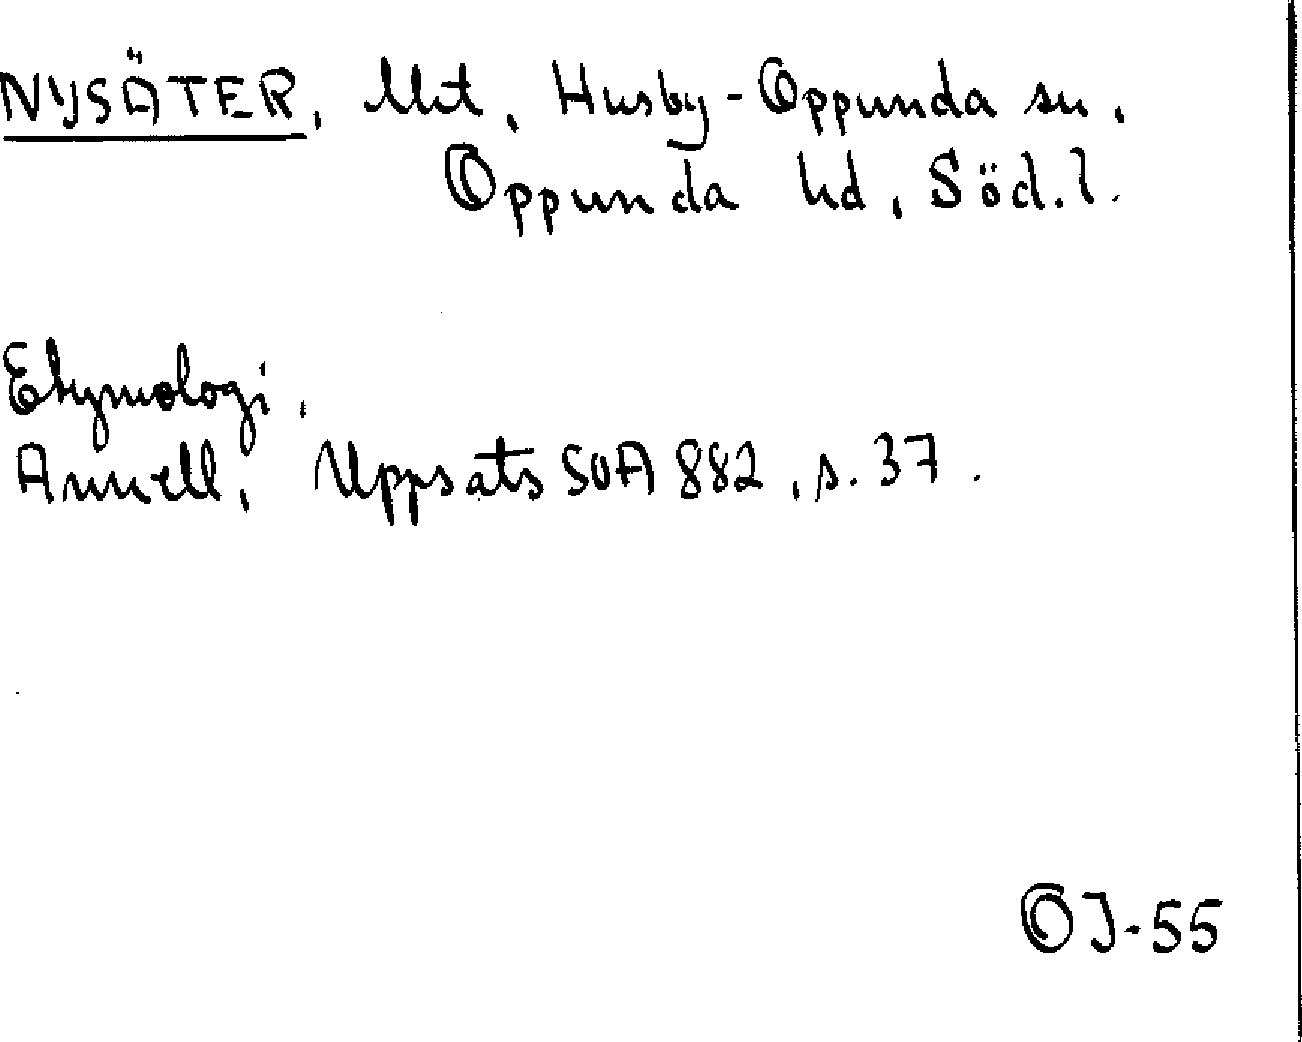 NYSÄTER, Ut, Husby-Oppunda sn,
Oppunda hd, Söd.l.
Etymologi,
Annell, Uppsats SOA 882, s. 37.
OJ-55